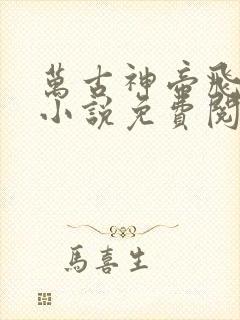 萬古神帝飛
小說免費閱
馬喜生